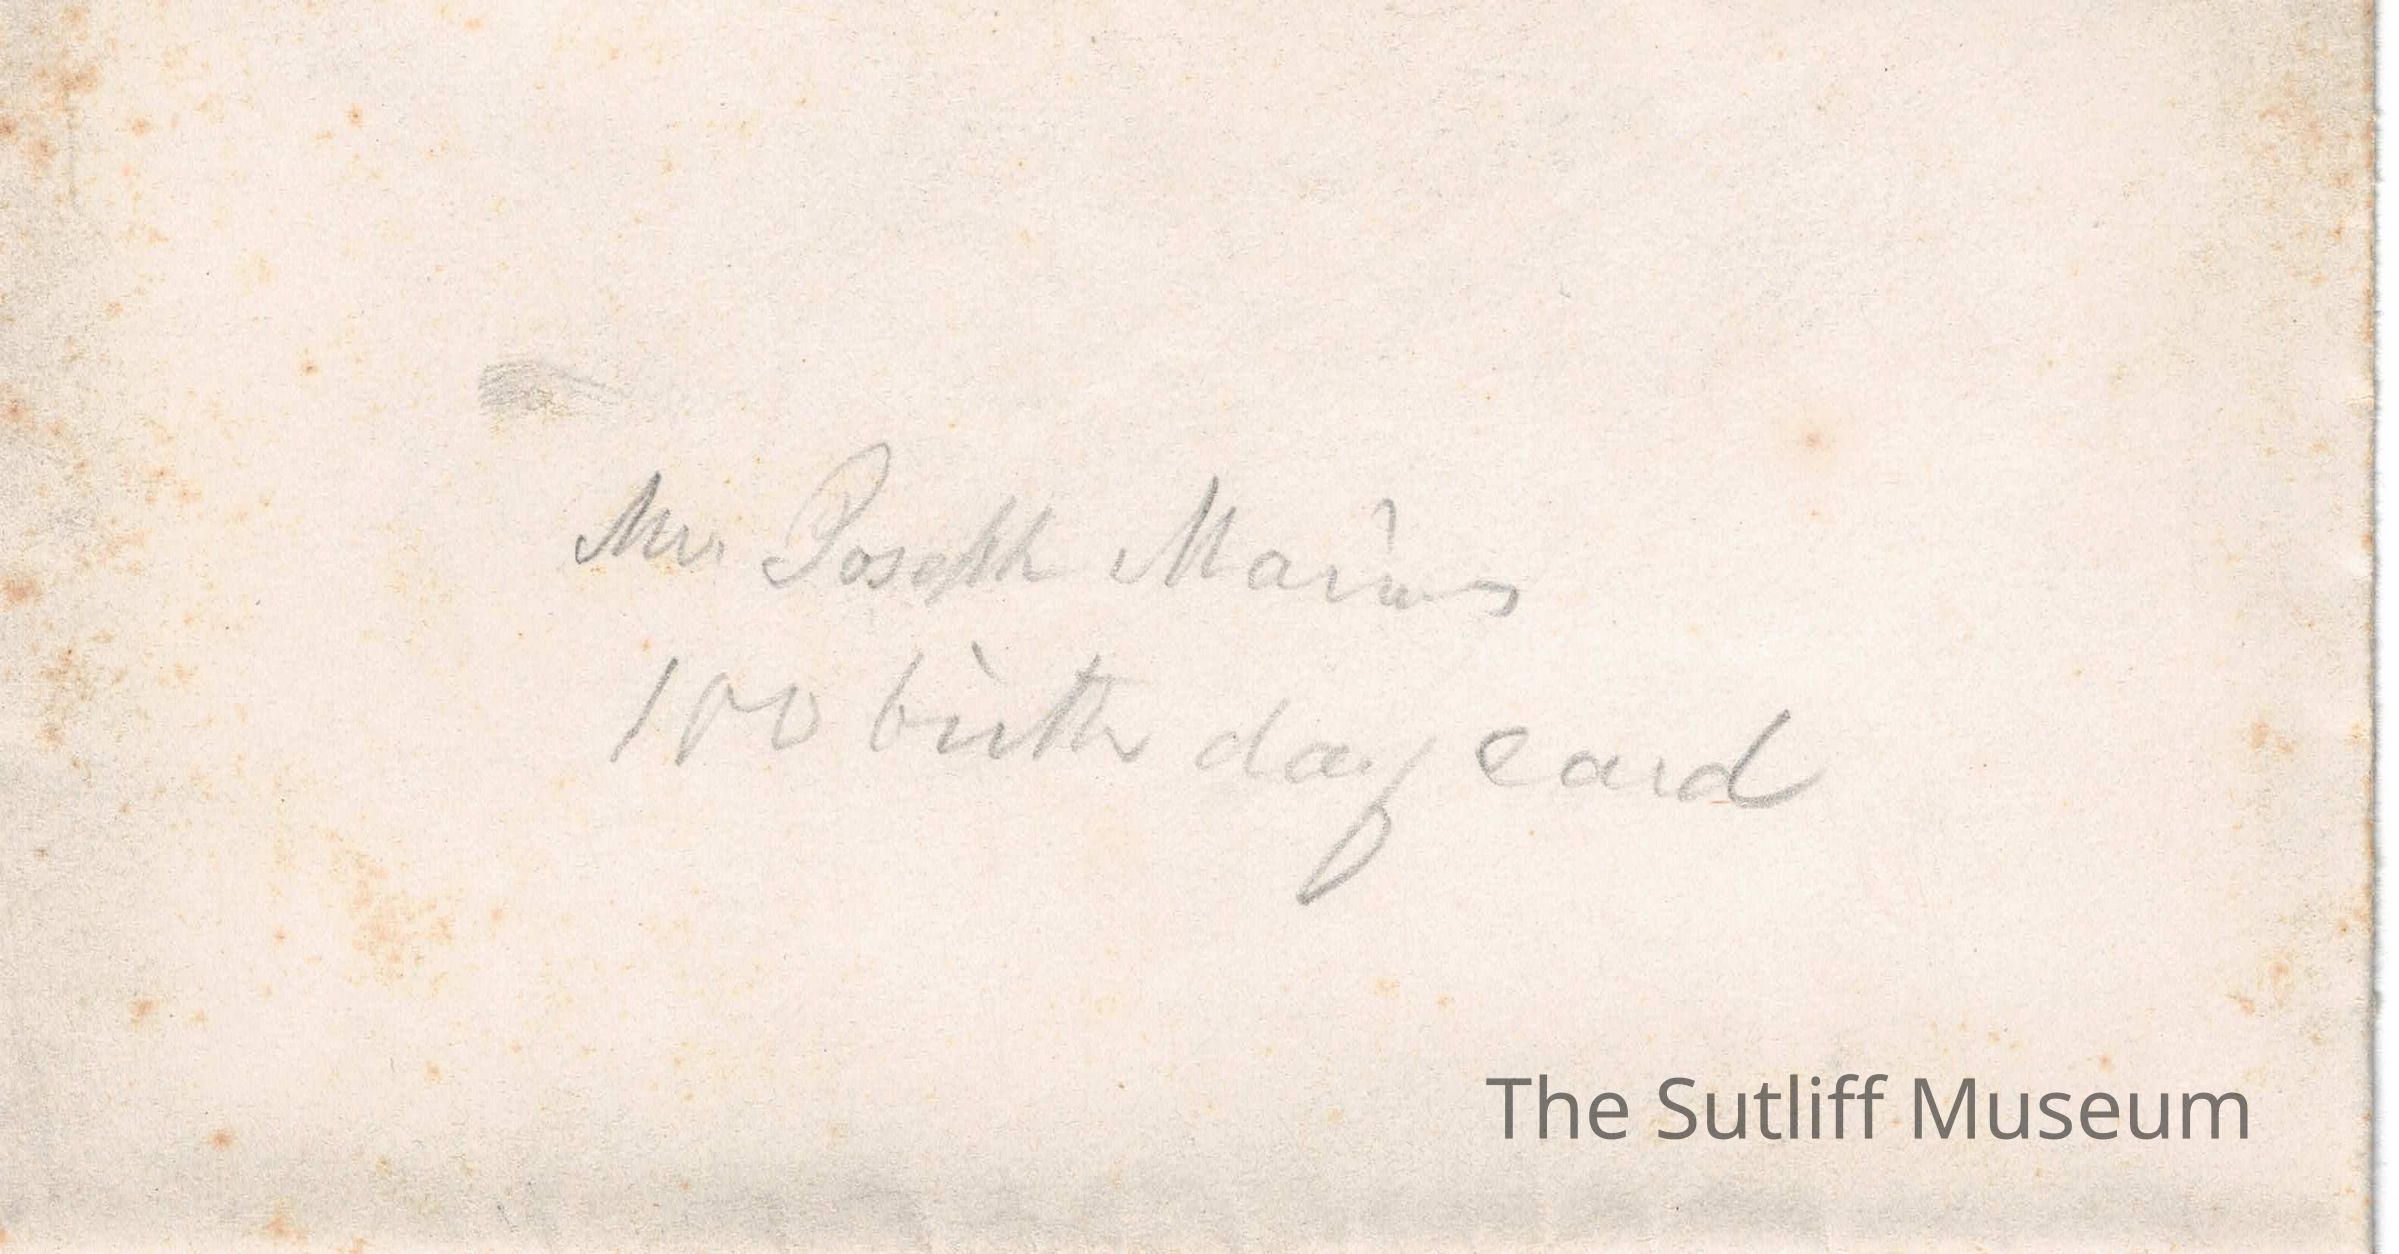 Mr. Joseph Marius
100 birth day card
The Sutliff Museum